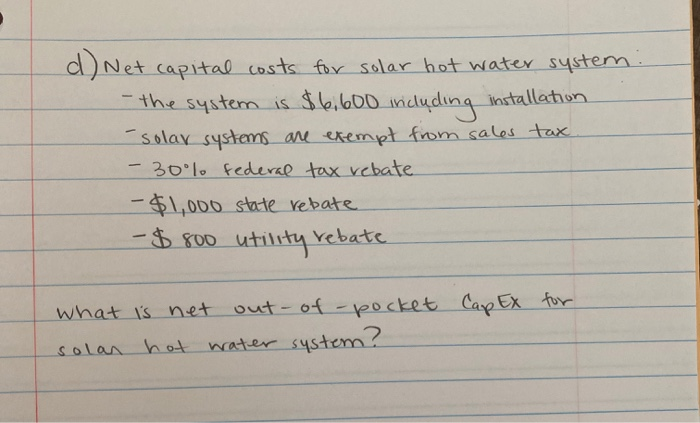 d) Net capital costs for solar hot water system:
- the system is $6,600 including installation
- solar systems are exempt from sales tax
- 30% federal tax rebate
- $1,000 state rebate
- $800 utility rebate
What is net out-of-pocket CapEx for
solar hot water system?